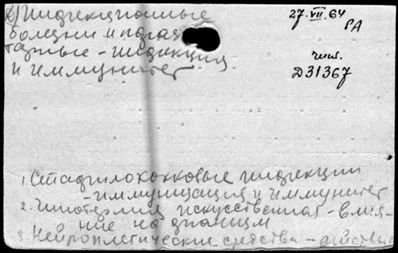 Инфекционные
болезни и пара
тарные - инфекция
и иммунитет
27.VII.64
РА
чит.
Д31367
1. Стафилококковые инфекции
- иммунизация и иммунитет
2. Гипотермия искусственная - влия-
ние на
3. Нейроплегические средства - действие